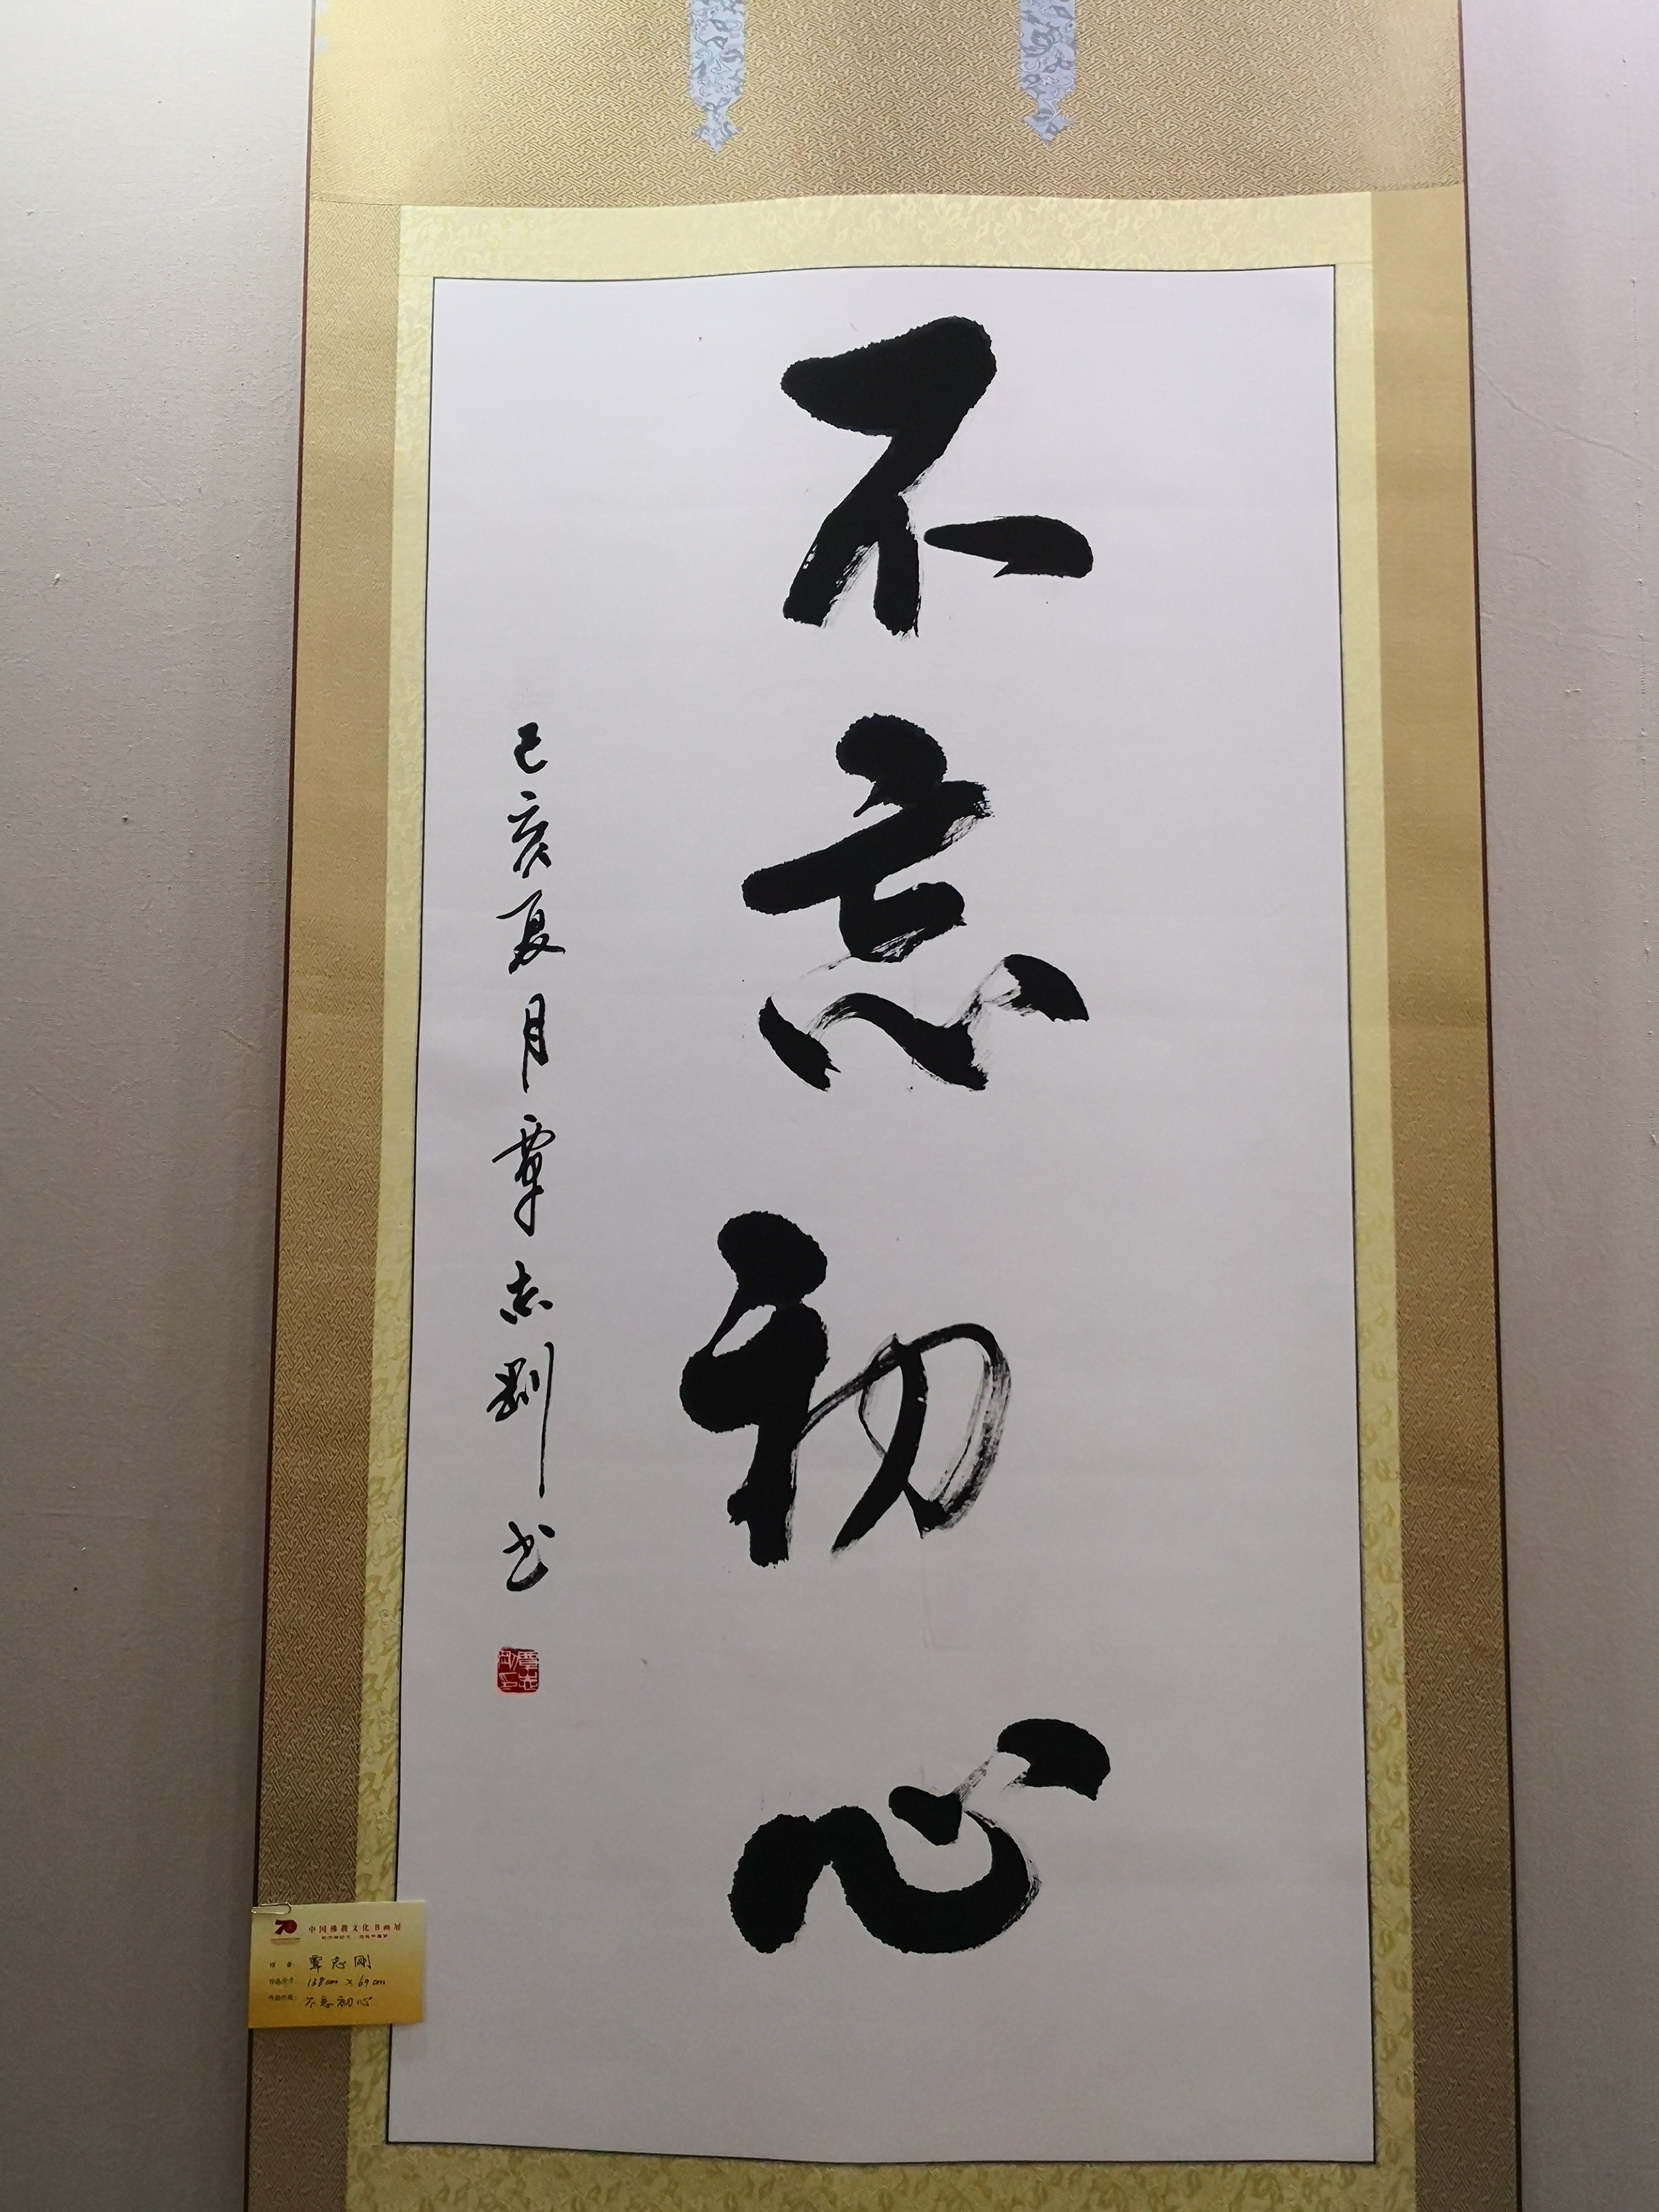 不忘初心
己亥夏月覃志刚书
70
中国佛教文化书画展
作 者: 覃志刚
作品尺寸: 138cm x 69cm
作品名称: 不忘初心